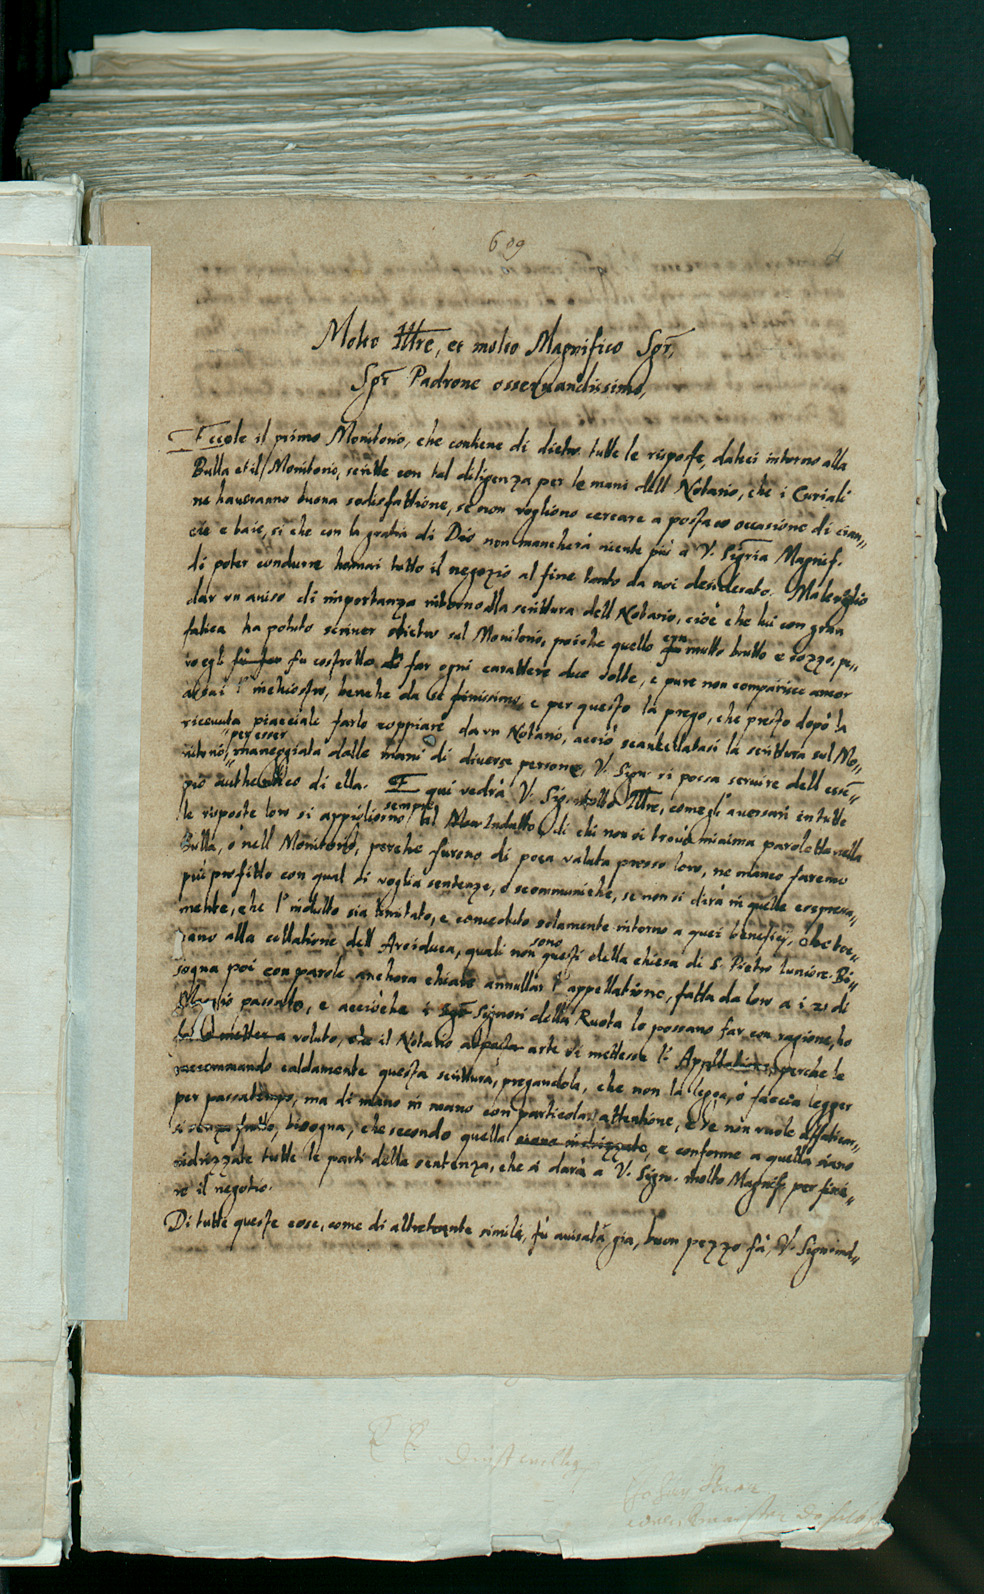 609
4
Molto Illre, et molto Magnifico Sgr,
Sgr Padrone osservandissimo,
Eccole il primo Monitorio, che contiene di dietro tutte le risposte, dateci intorno alla
Bulla et il Monitorio, scritte con tal diligenza per le mani dell Notario, che i Curiali
ne haueranno buona sodisfattione, se non vogliono cercare a posta occasione di cian„
cie e baie, si che con la gratia di Dio non mancherà niente più a V. Sigria Magnif.
di poter condurre homai tutto il negozio al fine tanto da noi desiderato. Ma le voglio
dar un auiso di importanza intorno alla scrittura dell Notario, cioè che lui con gran
fatica ha potuto scriuer dietro sul Monitorio, poiche quello era molto brutto e sozzo, pe„
rò egli fu costretto di far ogni carattere due volte, e pure non comparisce ancor
assai l'inchiostro, benche da se finissimo, e per questo la prego, che presto dopò la
riceuuta piacciale farlo coppiare da un Notario, acciò scancellatasi la scrittura sul Mo„
nitorio, per esser maneggiata dalle mani di diuerse persone, V. Sign. si possa seruire dell essē„
pio authentico di ella. E qui vedrà V. Sig. molto Illre, come gli auersari in tutte
le risposte loro si appigliorno sempre al Indulto, di chi non si troua minima paroletta nella
Bulla, ò nell Monitorio, perche furono di poca valuta presso loro, ne manco faremo
più profitto con qual si voglia sentenze, ò scommuniche, se non si dirà in quelle espressa„
mente, che l'indulto sia limitato, e conceduto solamente intorno a quei beneficij, che toc„
cano alla collatione dell Arciduca, quali non sono questi della chiesa di S. Pietro Iuniore. Bi„
sogna poi con parole anchora chiare annullar l'appellatione, fatta da loro a i 21 di
Maggio passato, e acciòche i Signori della Ruota lo possano far con ragione, ho
voluto, che il Notario a posta arte vi mettesse l'Appellatione, perche le
raccommando caldamente questa scrittura, pregandola, che non la legga, ò faccia legger
per passatempo, ma di mano in mano con particolar attentione, e se non vuole affaticar„
si senza frutto, bisogna, che secondo quella, e conforme a quella siano
indrizzate tutte le parti della sentenza, che si darà a V. Sign. molto Magnif. per fini„
re il negotio.
Di tutte queste cose, come di altretante simili, fù auisata già, buon pezzo fà, V. Sign. ind„